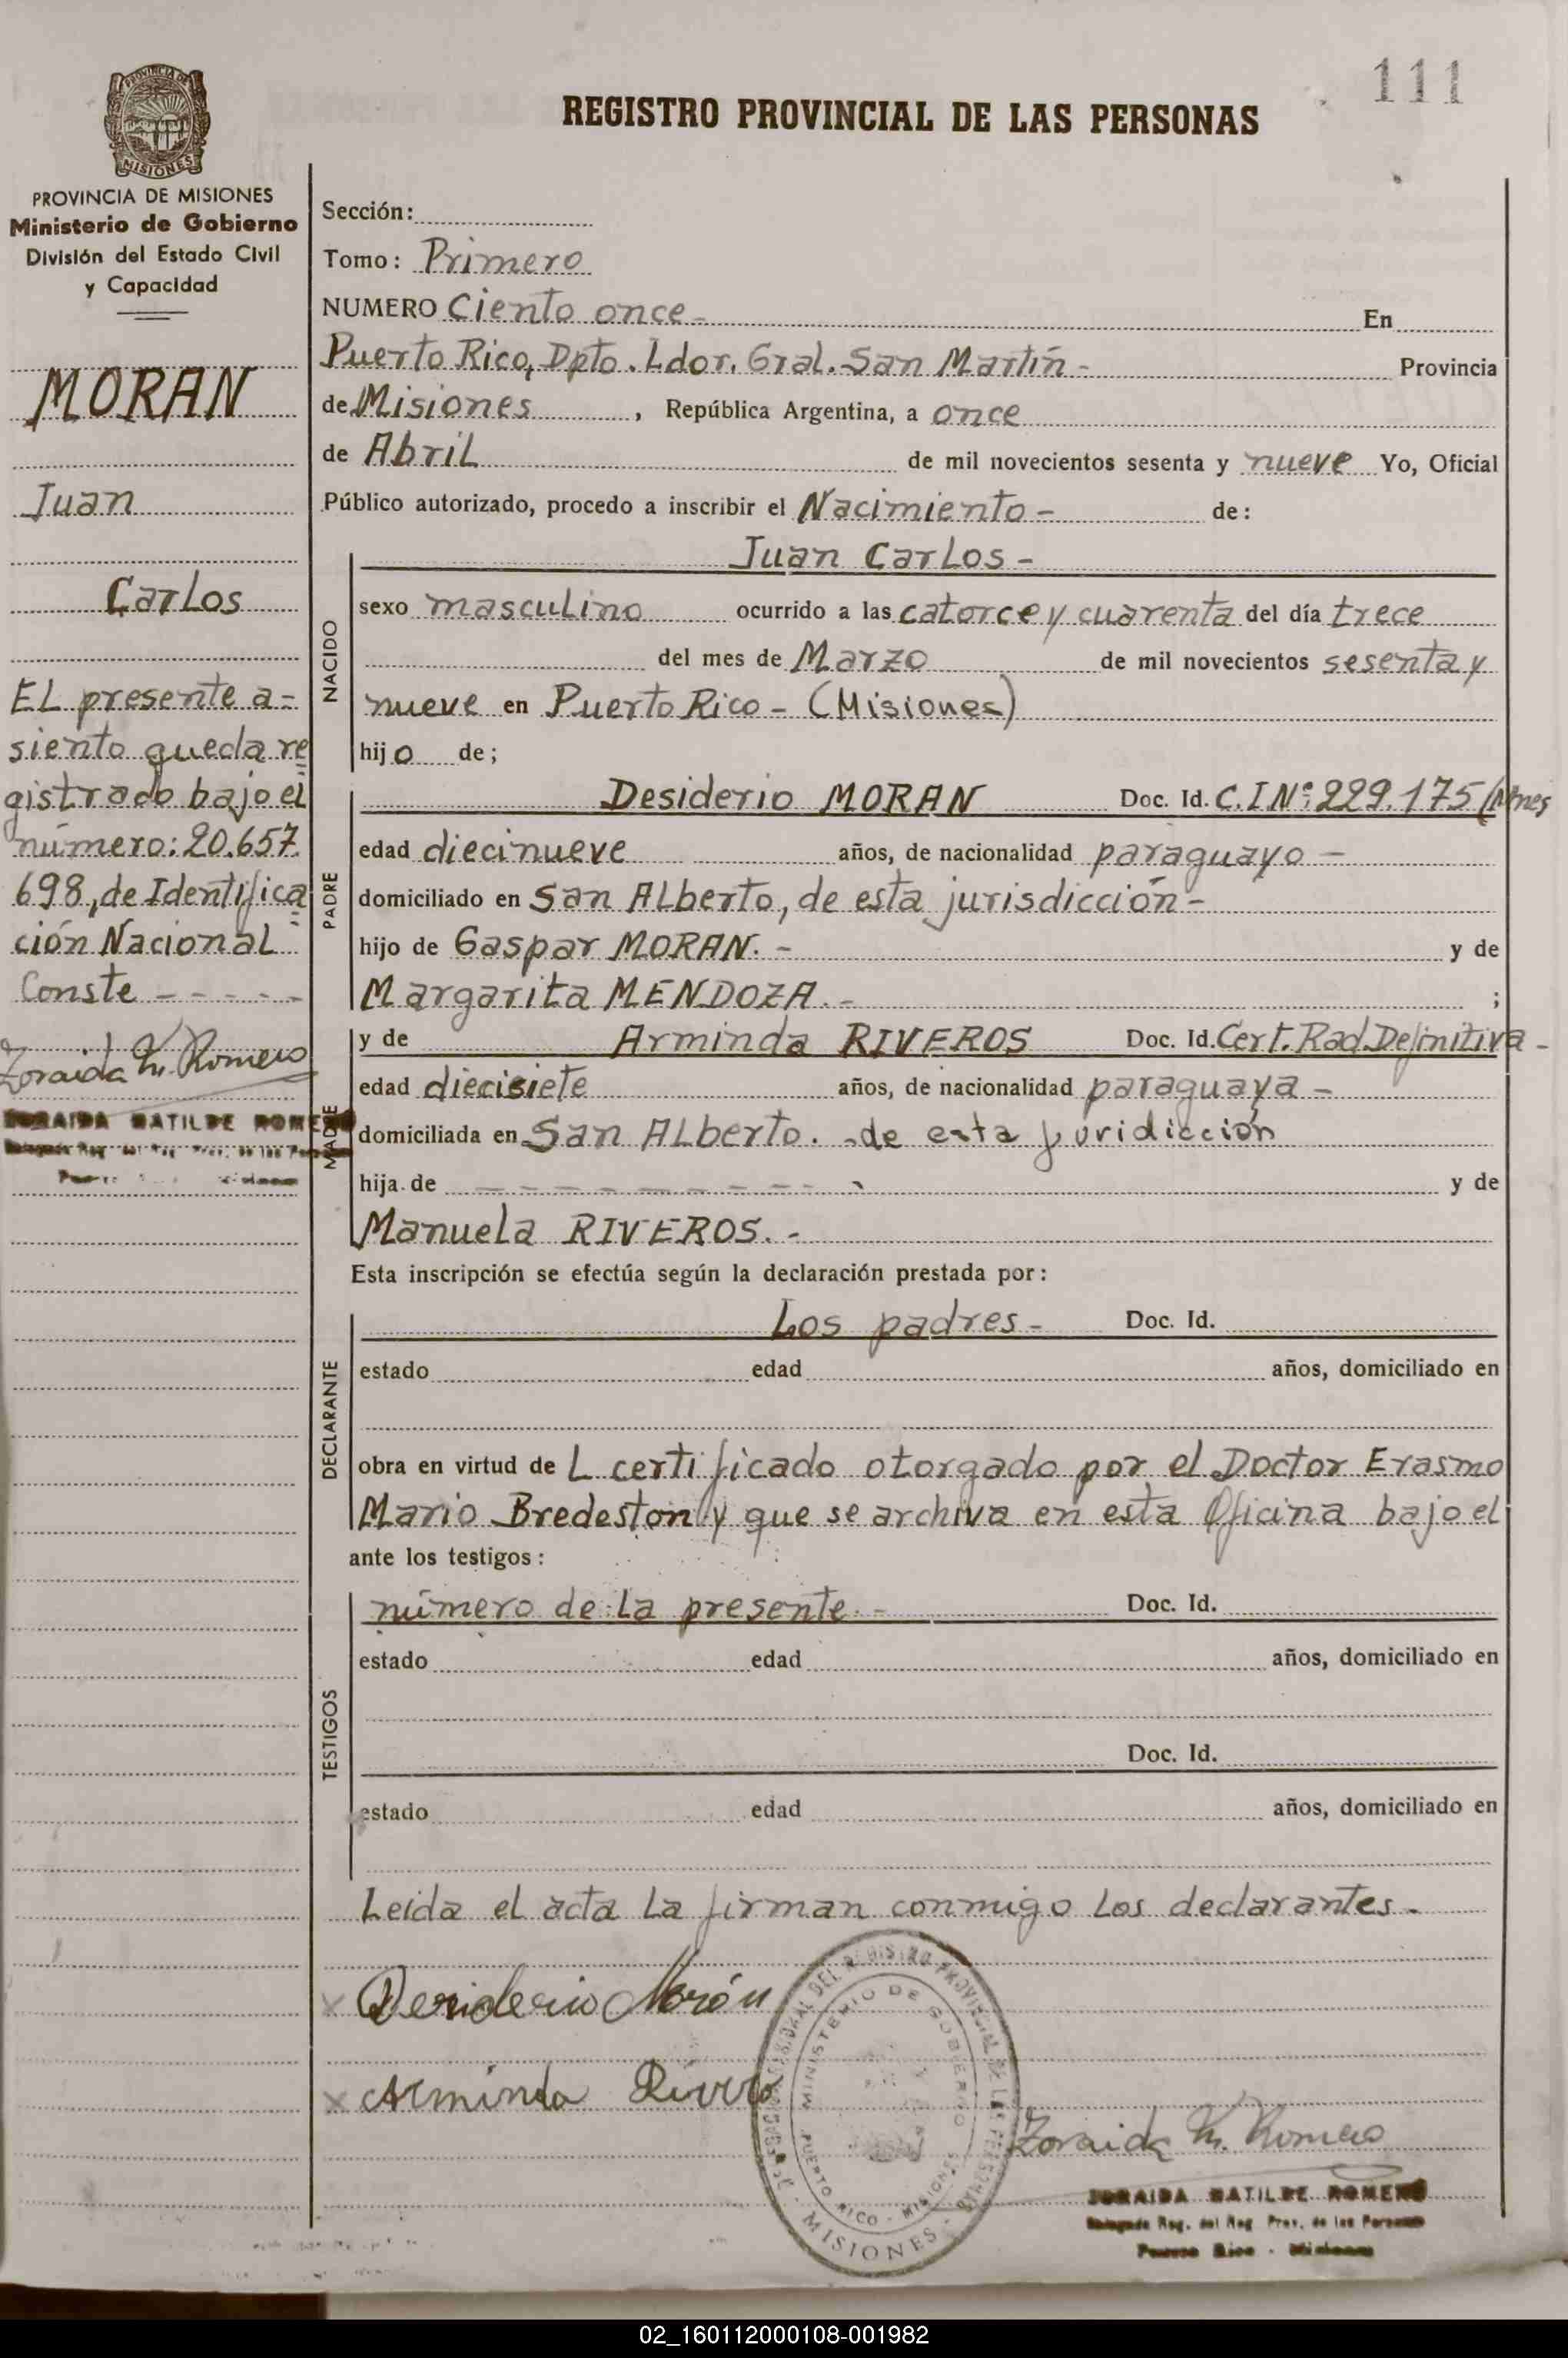 111
REGISTRO PROVINCIAL DE LAS PERSONAS
PROVINCIA DE MISIONES
MISIONES
PROVINCIA DE MISIONES
Ministerio de Gobierno
División del Estado Civil
y Capacidad
MORAN
Juan
Carlos
EL presente a=
siento queda re=
gistrado bajo el
número: 20.657.
698, de Identifica=
ción Nacional
Conste - - - - -
Zoraida M. Romero
ZORAIDA MATILDE ROMERO
Sección:
Tomo: Primero
NUMERO Ciento once - En
Puerto Rico, Dpto. Ldor. Gral. San Martín - Provincia
de Misiones, República Argentina, a once
de Abril de mil novecientos sesenta y nueve Yo, Oficial
Público autorizado, procedo a inscribir el Nacimiento - de:
NACIDO
Juan Carlos -
sexo masculino ocurrido a las catorce y cuarenta del día trece
del mes de Marzo de mil novecientos sesenta y
nueve en Puerto Rico - (Misiones)
hijo de;
PADRE
Desiderio MORAN Doc. Id. C.I Nº: 229.175 (Mnes
edad diecinueve años, de nacionalidad paraguayo -
domiciliado en San Alberto, de esta jurisdicción -
hijo de Gaspar MORAN. - y de
Margarita MENDOZA. - ;
MADRE
y de Arminda RIVEROS Doc. Id. Cert. Rad. Definitiva -
edad diecisiete años, de nacionalidad paraguaya -
domiciliada en San Alberto. - de esta juridicción
hija de - - - - - - - - - y de
Manuela RIVEROS. -
Esta inscripción se efectúa según la declaración prestada por:
DECLARANTE
Los padres - Doc. Id.
estado edad años, domiciliado en
obra en virtud de L certificado otorgado por el Doctor Erasmo
Mario Bredeston y que se archiva en esta Oficina bajo el
ante los testigos:
TESTIGOS
número de la presente. - Doc. Id.
estado edad años, domiciliado en
Doc. Id.
estado edad años, domiciliado en
Leída el acta la firman conmigo los declarantes. -
x Desiderio Morán
x Arminda
MINISTERIO DE GOBIERNO
PUERTO RICO - MISIONES
DEL REGISTRO PROVINCIAL DE LAS PERSONAS
- MISIONES -
Zoraida M. Romero
ZORAIDA MATILDE ROMERO
Delegada Reg. del Reg. Prov. de las Personas
Puerto Rico - Misiones
02_160112000108-001982